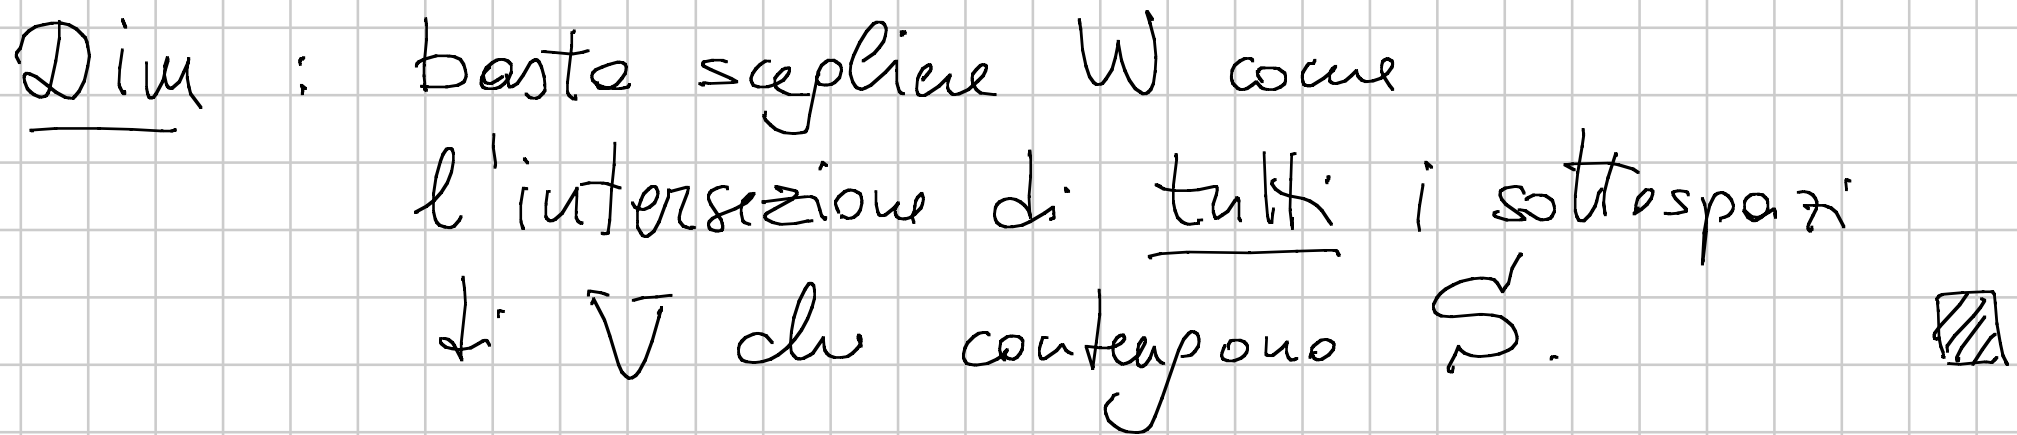 Dim : basta scegliere W come
l'intersezione di tutti i sottospazi
di V che contengono S.